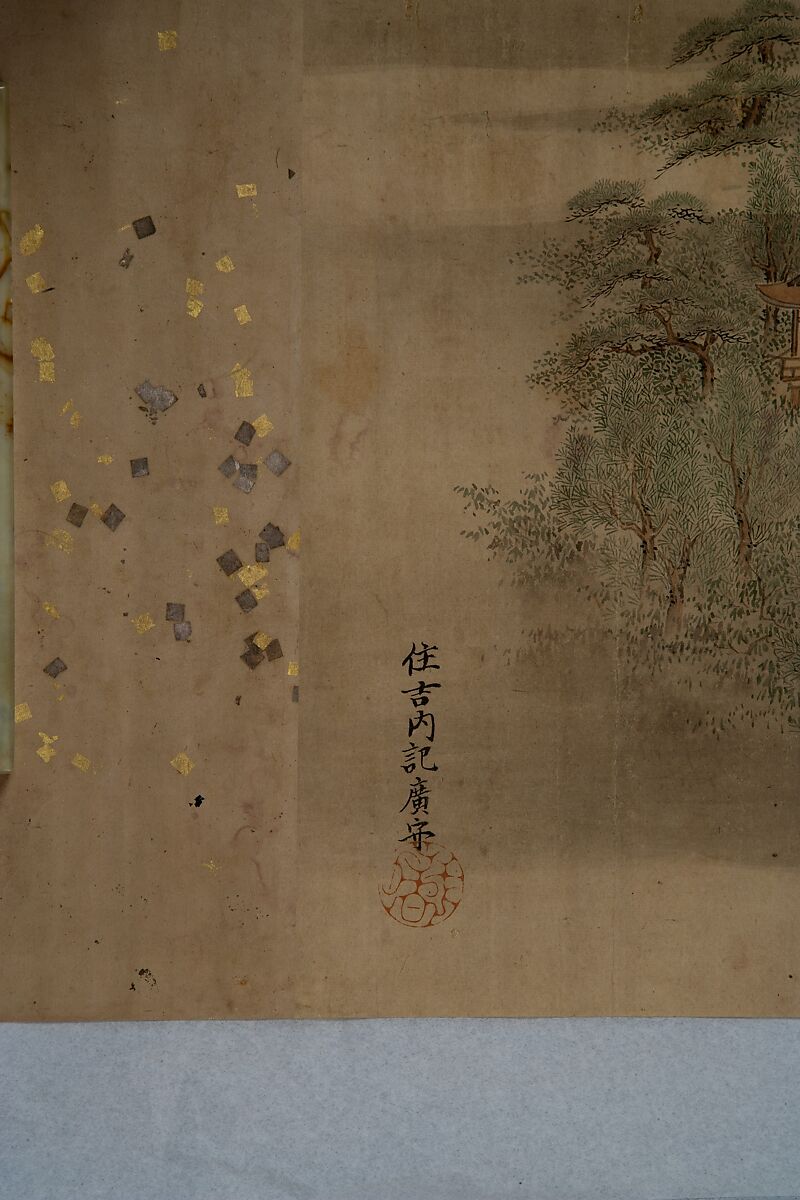 住吉内記廣守